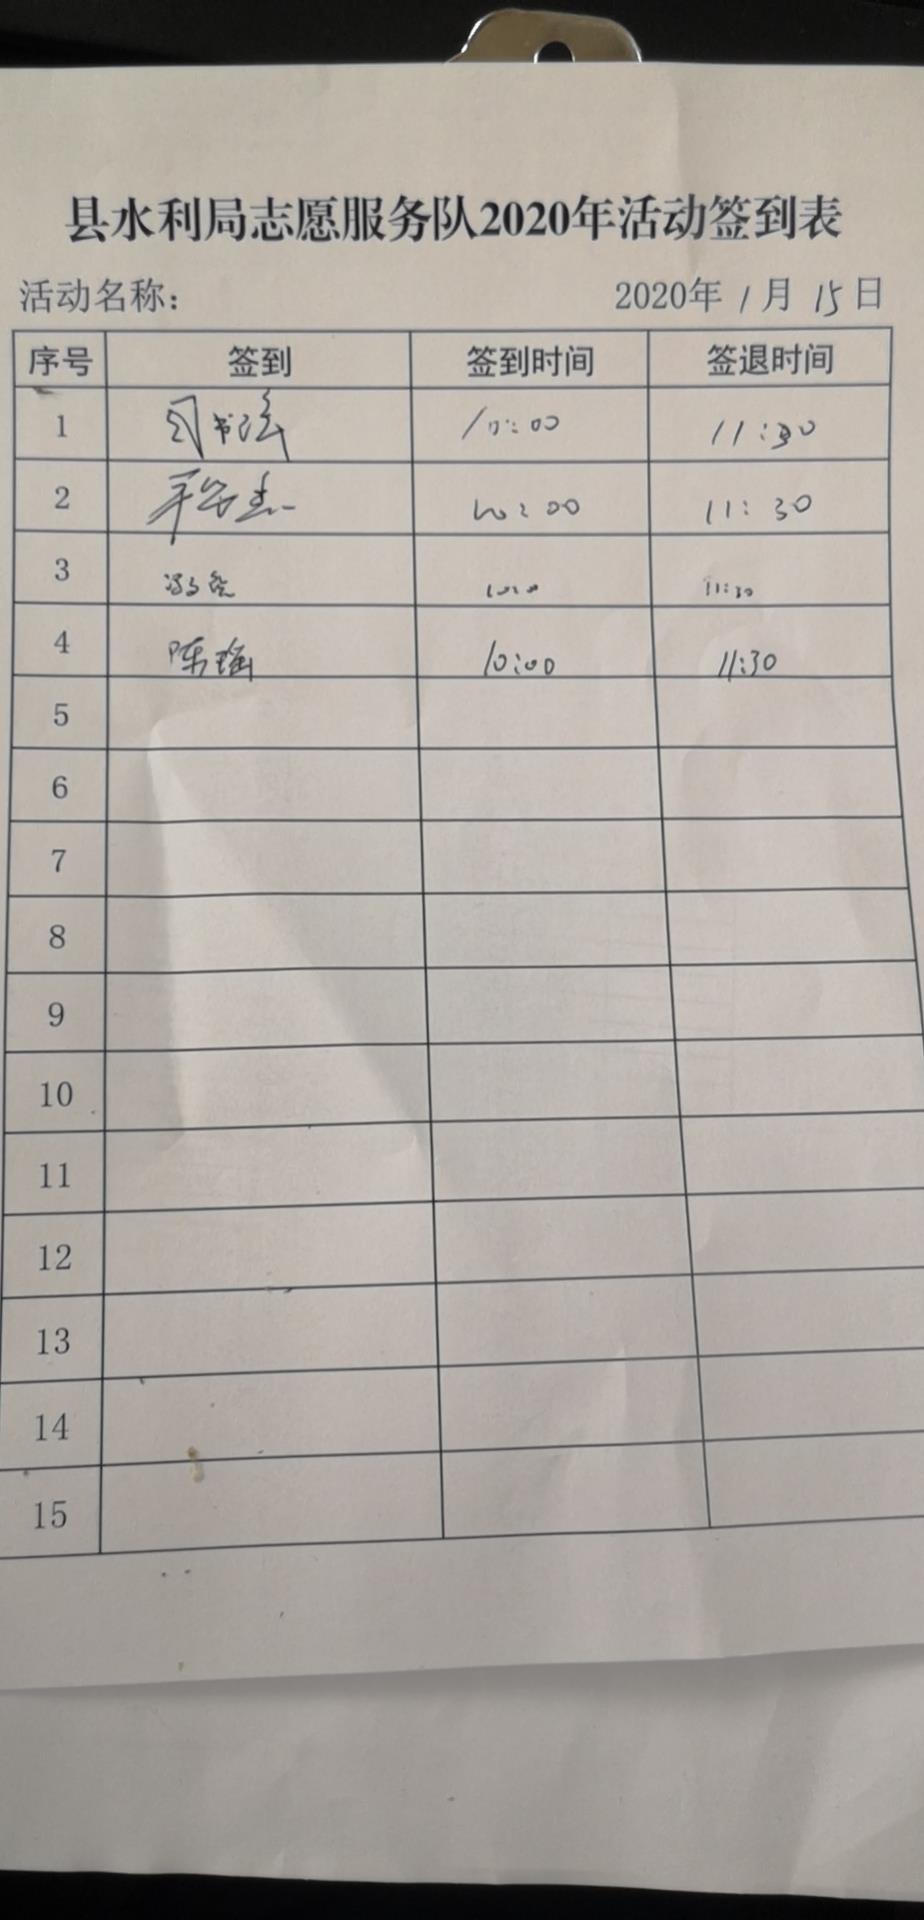 县水利局志愿服务队2020年活动签到表
活动名称: 2020年1月15日
序号 签到 签到时间 签退时间
1 10:00 11:30
2 10:00 11:30
3 11:30
4 陈瑶 10:00 11:30
5
6
7
8
9
10
11
12
13
14
15